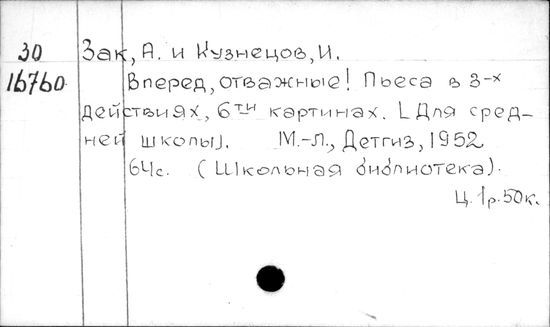 30 Зак, А. и Кузнецов, И.
16760 Вперед, отважные! Пьеса в 3-х
действиях, 6ти картинах. [Для сред-
ней школы]. М.-Л., Детгиз, 1952
64с. (Школьная библиотека).
Ц. 1р. 50к.